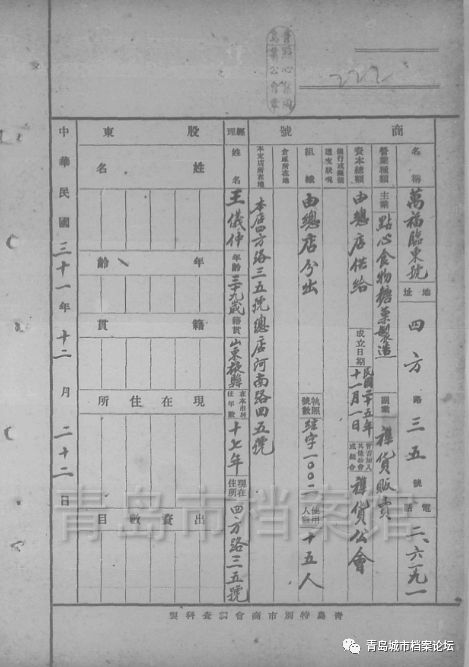 222
商號
名稱 萬福臨東號 地址 四方路三五號 電話 二、六一九一
營業種類 主業 點心食物糖菓製造 副業 雜貨販賣
資本總額 由總店供給 成立日期 民國二十五年十一月一日 雜貨公會
組織 由總店分出 執照號數 使用人數 十五人
倉庫所在地
本支店所在地 本店四方路三五號總店河南路四五號
經理 姓名 王儀仲 年齡 三十九歲 籍貫 山東掖縣 在本市居住年數 十七年 現在住所 四方路三五號
股東
姓名
年齡
籍貫
現在住所
出資數目
中華民國三十一年十二月二十二日
青島特別市商會調查科製
青岛市档案馆
青岛城市档案论坛